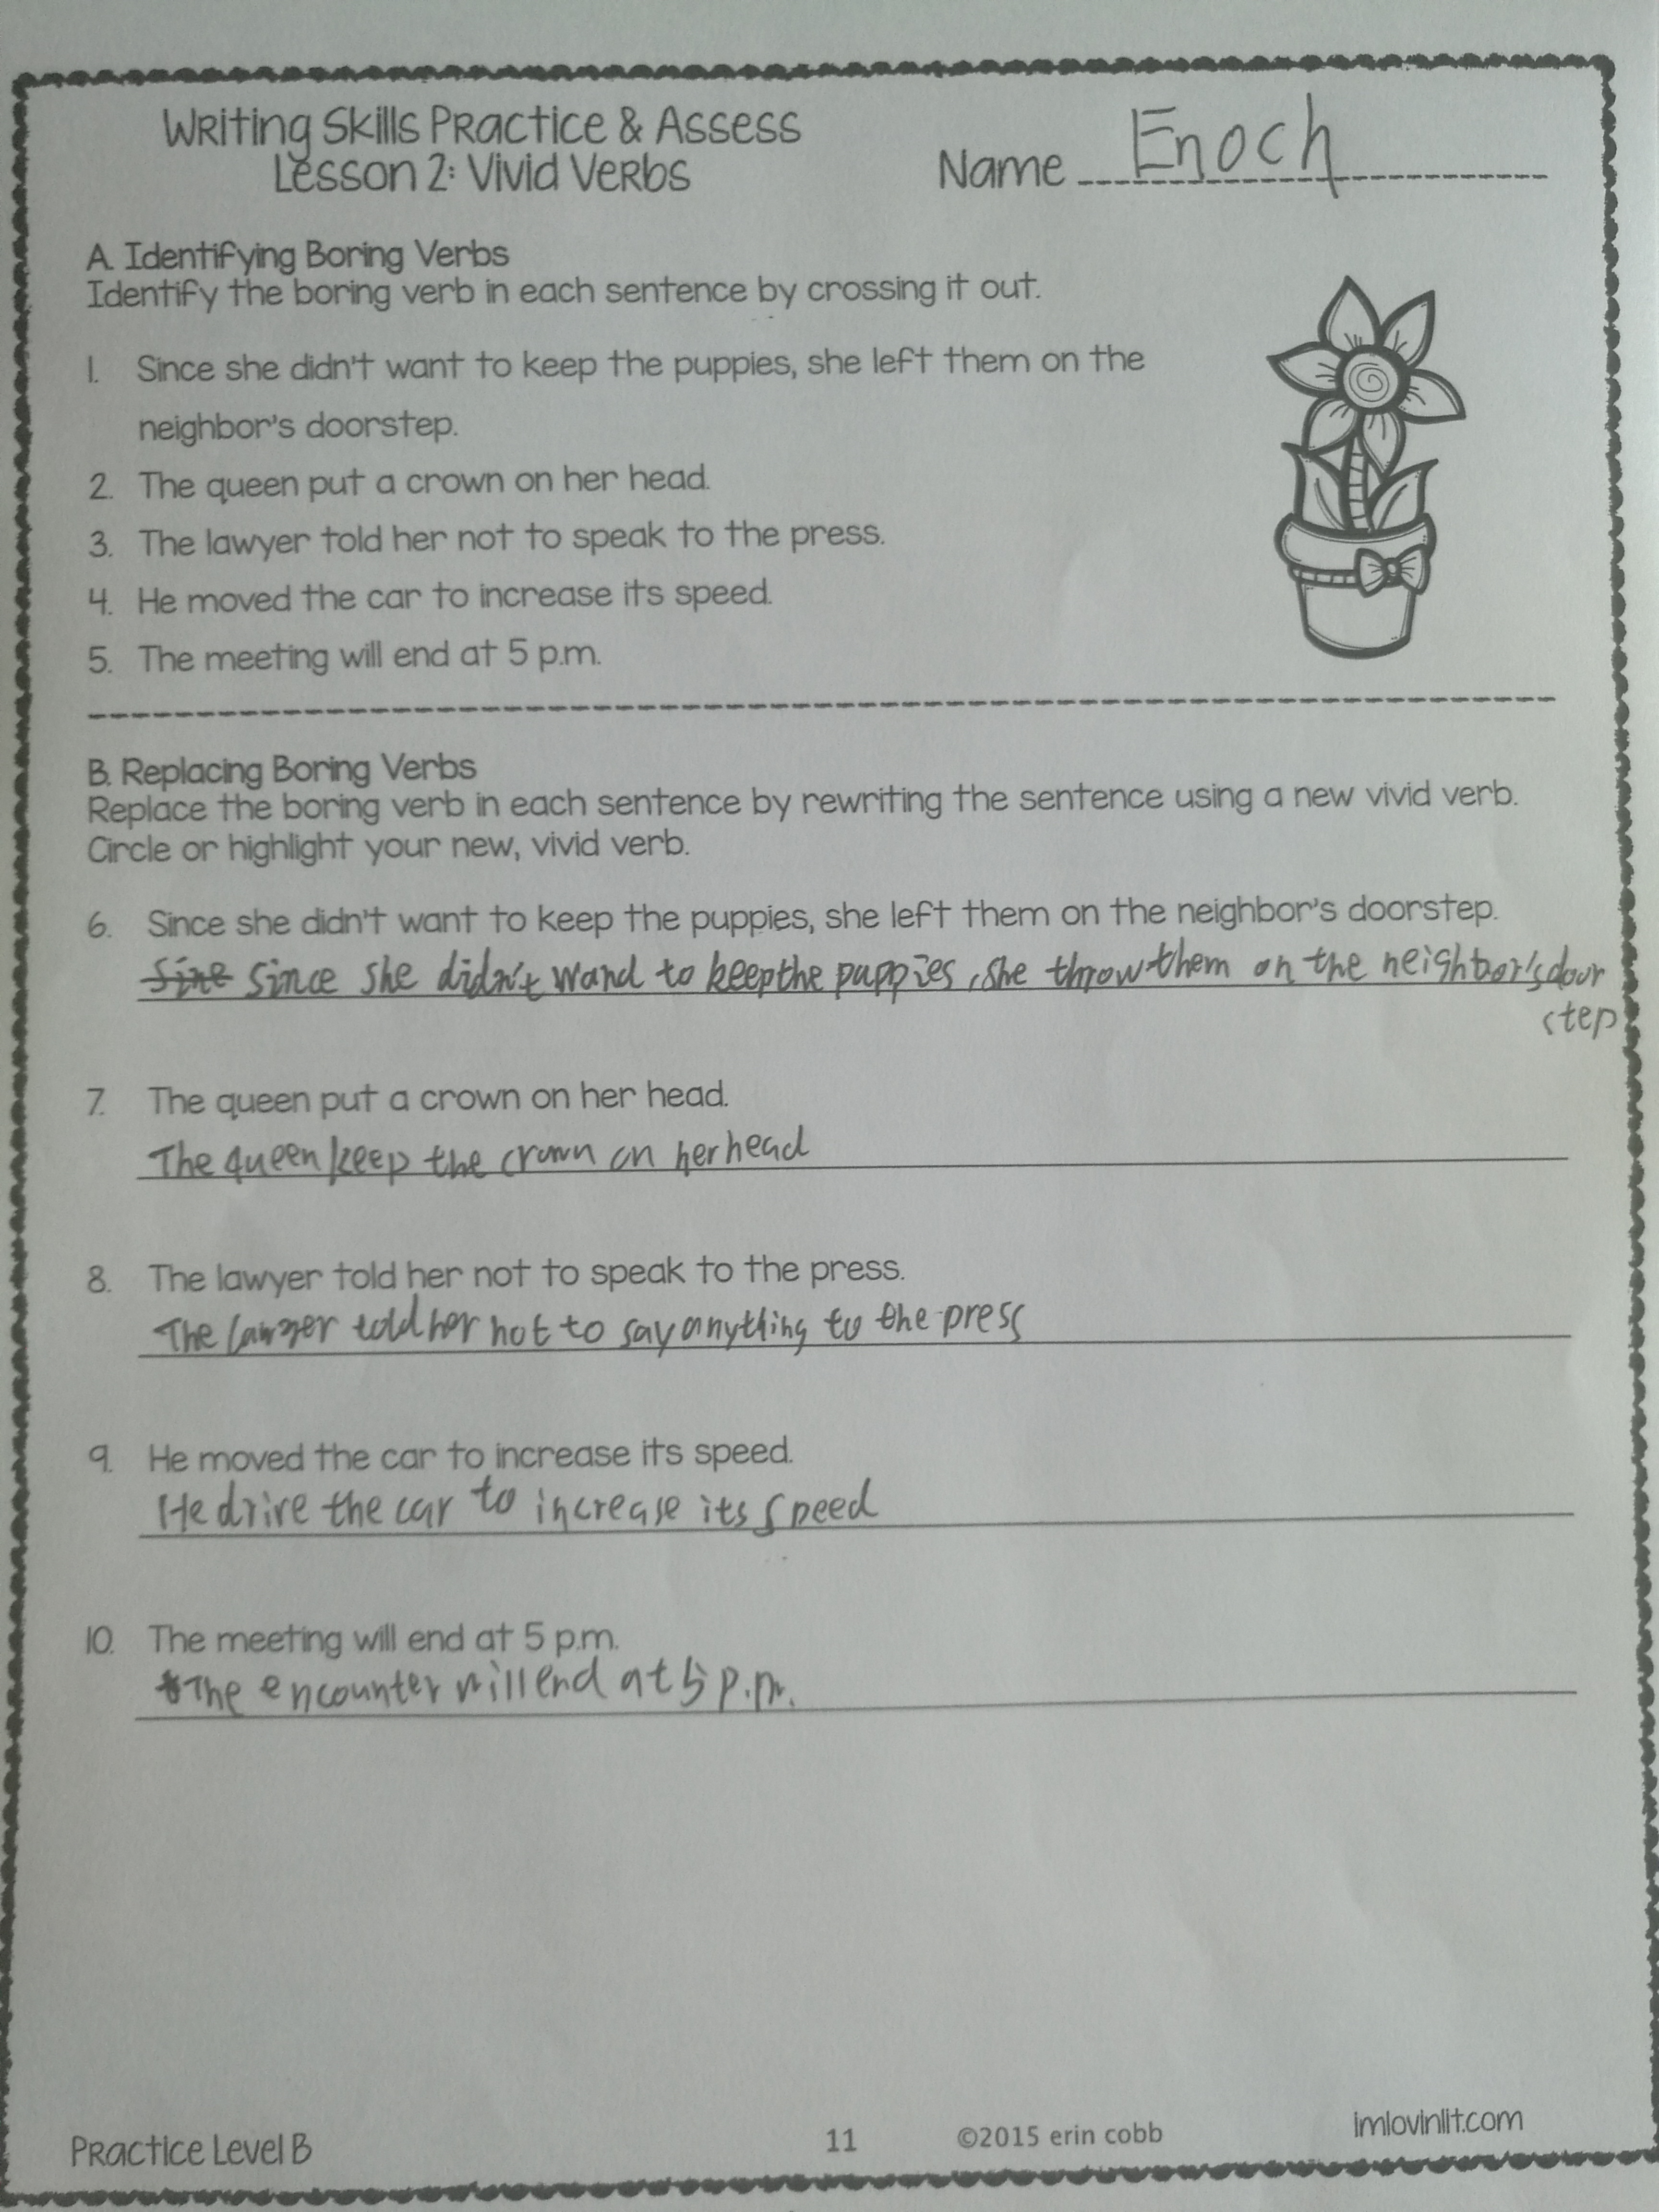 Writing Skills Practice & Assess
Lesson 2: Vivid Verbs
Name Enoch
A. Identifying Boring Verbs
Identify the boring verb in each sentence by crossing it out.
1. Since she didn't want to keep the puppies, she left them on the
neighbor's doorstep.
2. The queen put a crown on her head.
3. The lawyer told her not to speak to the press.
4. He moved the car to increase its speed.
5. The meeting will end at 5 p.m.
B. Replacing Boring Verbs
Replace the boring verb in each sentence by rewriting the sentence using a new vivid verb.
Circle or highlight your new, vivid verb.
6. Since she didn't want to keep the puppies, she left them on the neighbor's doorstep.
Sine Since she didn't wand to keep the puppies, she throw them on the neighbor's door
step
7. The queen put a crown on her head.
The queen keep the crown on her head
8. The lawyer told her not to speak to the press.
The lawyer told her not to say anything to the press
9. He moved the car to increase its speed.
He drive the car to increase its speed
10. The meeting will end at 5 p.m.
The encounter will end at 5 p.m.
Practice Level B
11
©2015 erin cobb
imlovinlit.com